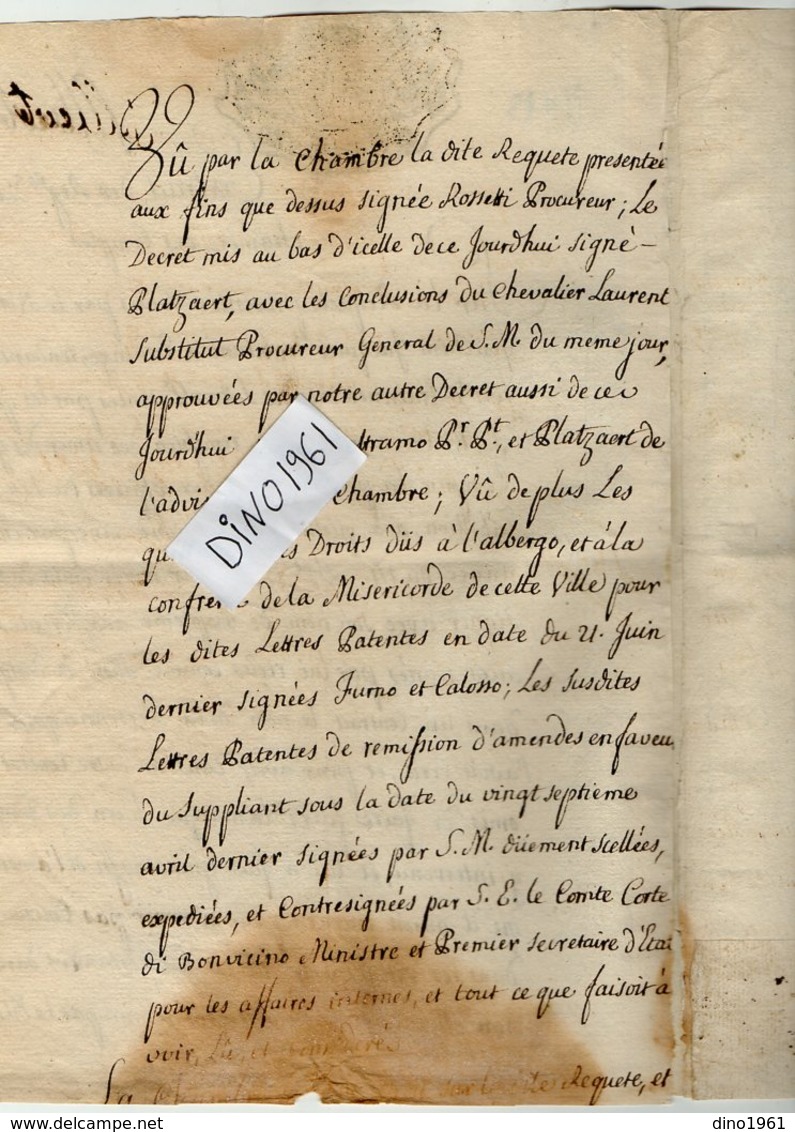 Vû par la Chambre la dite Requete presentée
aux fins que dessus signée Rossetti Procureur; Le
Decret mis au bas d'icelle dece Jourdhui signé –
Platzaert, avec les Conclusions du Chevalier Laurent
Substitut Procureur General de S. M. du meme jour,
approuvées par notre autre Decret aussi de ce
Jourdhui tramo Pr. Pt., et Platzaert de
l'advi Chambre; Vû de plus Les
qu Droits dûs à l'albergo, et à la
confre de la Misericorde de cette Ville pour
les dites Lettres Patentes en date du 21. Juin
dernier signées Furno et Calosso; Les susdites
Lettres Patentes de remission d'amendes en faveu
du Suppliant sous la date du vingt septieme
avril dernier signées par S. M. düement scellées,
expediées, et Contresignées par S. E. le Comte Corte
di Bonvicino Ministre et Premier secretaire d'Eta
pour les affaires internes, et tout ce que faisoit à
voir, Lû, et consideré
La Requete, et
DINO1961
dino1961